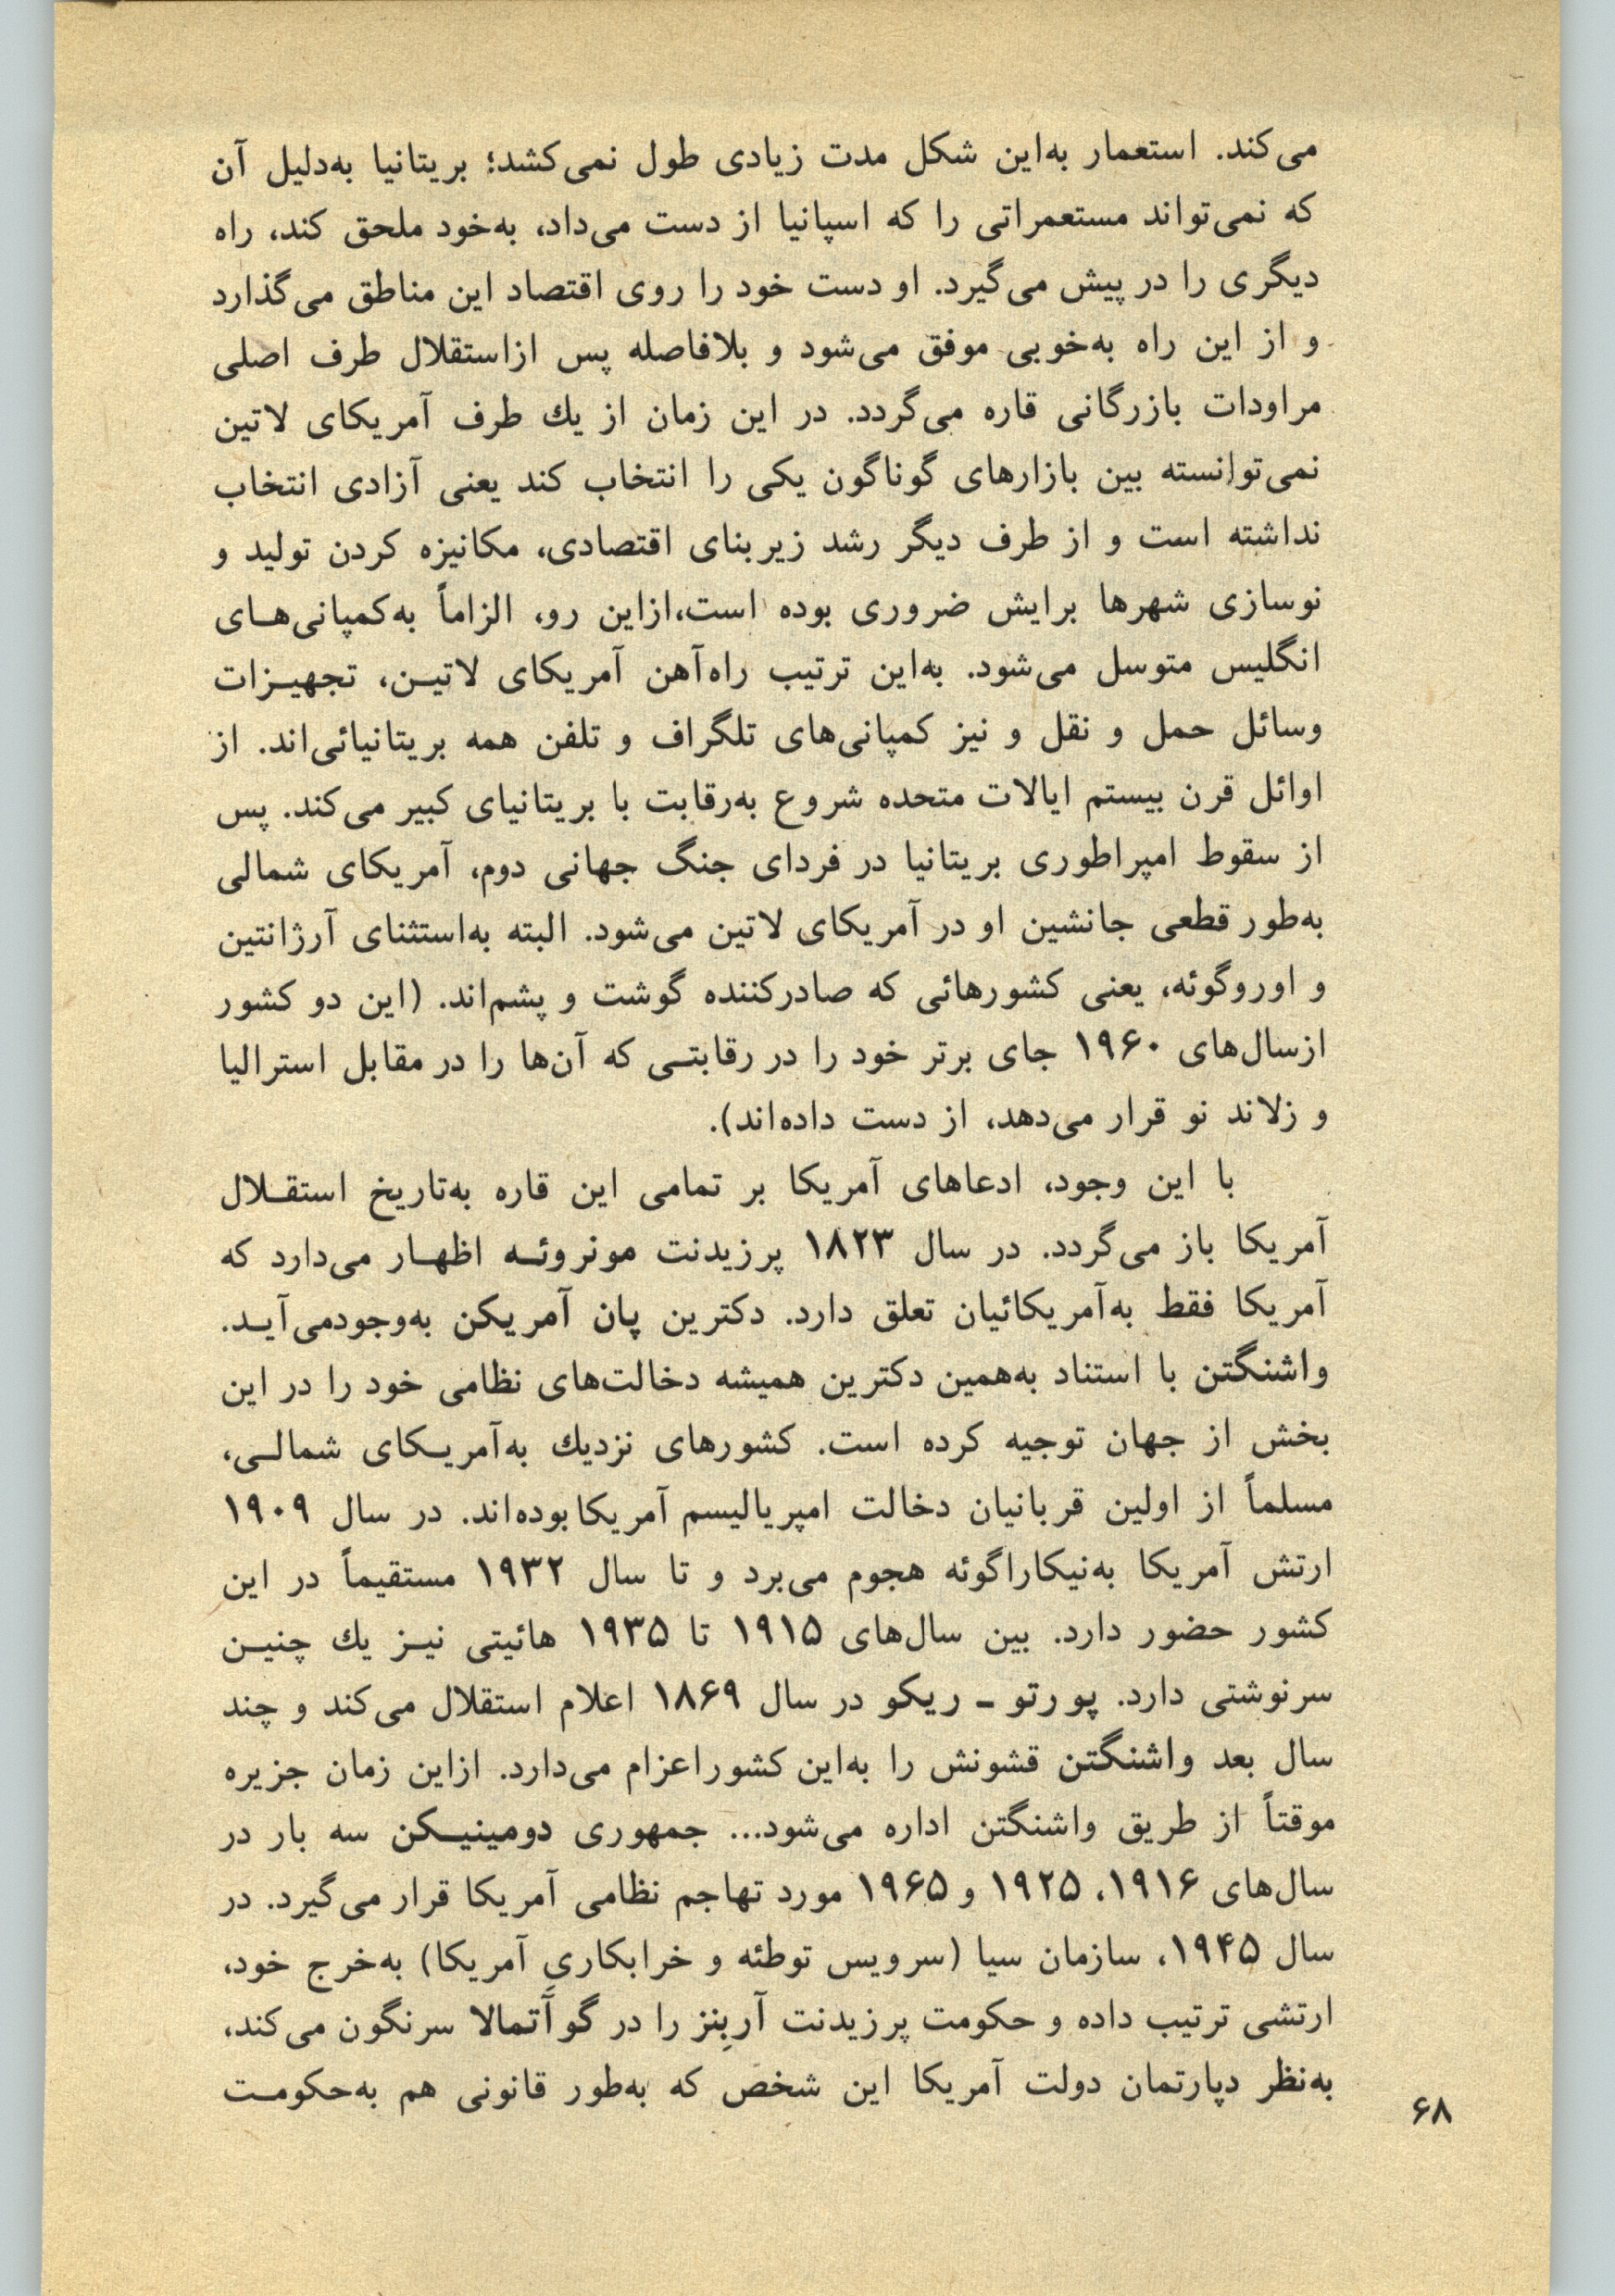 می‌کند. استعمار به‌این شکل مدت زیادی طول نمی‌کشد؛ بریتانیا به‌دلیل آن
که نمی‌تواند مستعمراتی را که اسپانیا از دست می‌داد، به‌خود ملحق کند، راه
دیگری را در پیش می‌گیرد. او دست خود را روی اقتصاد این مناطق می‌گذارد
و از این راه به‌خوبی موفق می‌شود و بلافاصله پس ازاستقلال طرف اصلی
مراودات بازرگانی قاره می‌گردد. در این زمان از یك طرف آمریکای لاتین
نمی‌توانسته بین بازارهای گوناگون یکی را انتخاب کند یعنی آزادی انتخاب
نداشته است و از طرف دیگر رشد زیربنای اقتصادی، مکانیزه کردن تولید و
نوسازی شهرها برایش ضروری بوده است،ازاین رو، الزاماً به‌کمپانی‌هـای
انگلیس متوسل می‌شود. به‌این ترتیب راه‌آهن آمریکای لاتیـن، تجهیـزات
وسائل حمل و نقل و نیز کمپانی‌های تلگراف و تلفن همه بریتانیائی‌اند. از
اوائل قرن بیستم ایالات متحده شروع به‌رقابت با بریتانیای کبیر می‌کند. پس
از سقوط امپراطوری بریتانیا در فردای جنگ جهانی دوم، آمریکای شمالی
به‌طور قطعی جانشین او در آمریکای لاتین می‌شود. البته به‌استثنای آرژانتین
و اوروگوئه، یعنی کشورهائی که صادرکننده گوشت و پشم‌اند. (این دو کشور
ازسال‌های ۱۹۶۰ جای برتر خود را در رقابتـی که آن‌ها را در مقابل استرالیا
و زلاند نو قرار می‌دهد، از دست داده‌اند).
با این وجود، ادعاهای آمریکا بر تمامی این قاره به‌تاریخ استقـلال
آمریکا باز می‌گردد. در سال ۱۸۲۳ پرزیدنت مونروئـه اظهـار می‌دارد که
آمریکا فقط به‌آمریکائیان تعلق دارد. دکترین پان آمریکن به‌وجودمی‌آیـد.
واشنگتن با استناد به‌همین دکترین همیشه دخالت‌های نظامی خود را در این
بخش از جهان توجیه کرده است. کشورهای نزدیك به‌آمریـکای شمالـی،
مسلماً از اولین قربانیان دخالت امپریالیسم آمریکا بوده‌اند. در سال ۱۹۰۹
ارتش آمریکا به‌نیکاراگوئه هجوم می‌برد و تا سال ۱۹۳۲ مستقیماً در این
کشور حضور دارد. بین سال‌های ۱۹۱۵ تا ۱۹۳۵ هائیتی نیـز یك چنیـن
سرنوشتی دارد. پورتو ـ ریکو در سال ۱۸۶۹ اعلام استقلال می‌کند و چند
سال بعد واشنگتن قشونش را به‌این کشور اعزام می‌دارد. ازاین زمان جزیره
موقتاً از طریق واشنگتن اداره می‌شود... جمهوری دومینیـکن سه بار در
سال‌های ۱۹۱۶، ۱۹۲۵ و ۱۹۶۵ مورد تهاجم نظامی آمریکا قرار می‌گیرد. در
سال ۱۹۴۵، سازمان سیا (سرویس توطئه و خرابکاریِ آمریکا) به‌خرج خود،
ارتشی ترتیب داده و حکومت پرزیدنت آربِنز را در گوآتمالا سرنگون می‌کند،
به‌نظر دپارتمان دولت آمریکا این شخص که به‌طور قانونی هم به‌حکومـت
۶۸